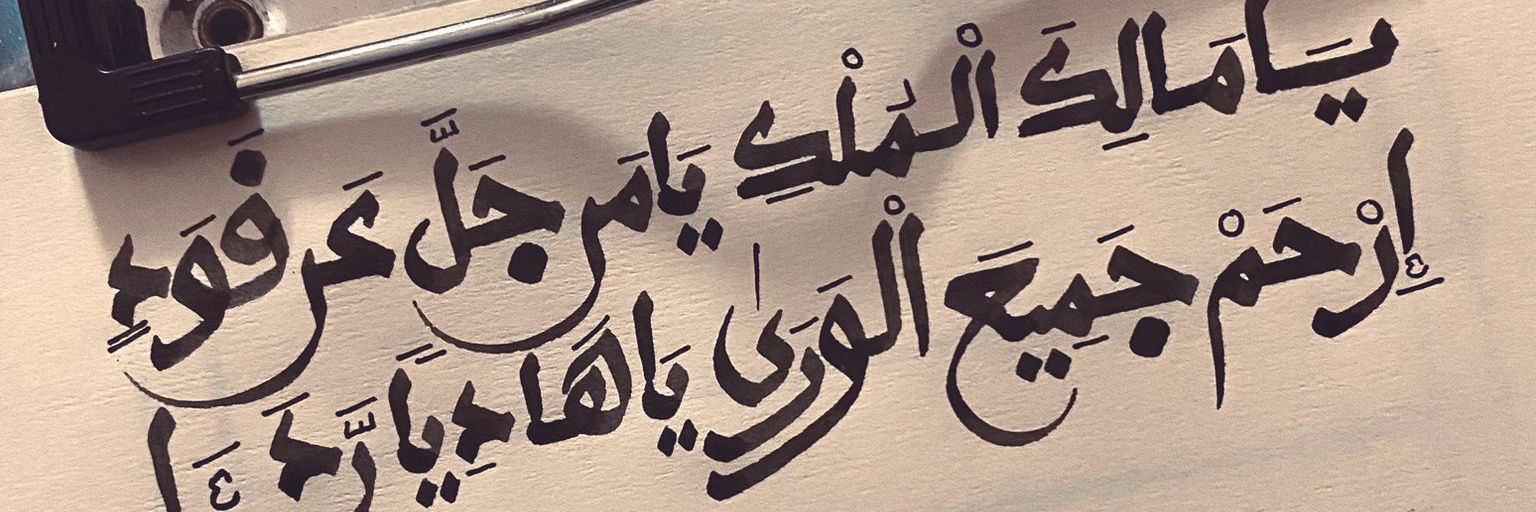 يَا مَالِكَ الْمُلْكِ يَا مَن جَلَّ عَن قَوَدٍ
إِرْحَمْ جَمِيعَ الْوَرَىٰ يَا هَادِياً